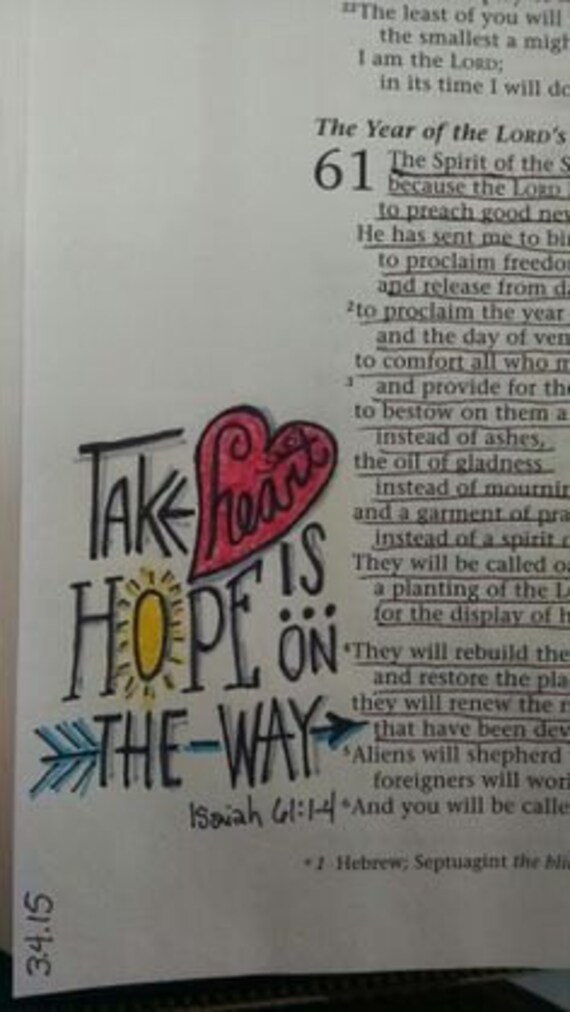 22The least of you will
the smallest a migh
I am the LORD;
in its time I will do
The Year of the LORD's
61 The Spirit of the S
because the LORD
to preach good new
He has sent me to bin
to proclaim freedo
and release from da
2to proclaim the year
and the day of ven
to comfort all who m
3 and provide for the
to bestow on them a
instead of ashes,
the oil of gladness
instead of mournin
and a garment of pra
instead of a spirit
They will be called oa
a planting of the L
for the display of h
4They will rebuild the
and restore the pla
they will renew the r
that have been dev
5Aliens will shepherd
foreigners will wor
6And you will be calle
a 1 Hebrew; Septuagint the blin
TAKE heart
HOPE IS
ON
THE-WAY
Isaiah 61:1-4
3.4.15